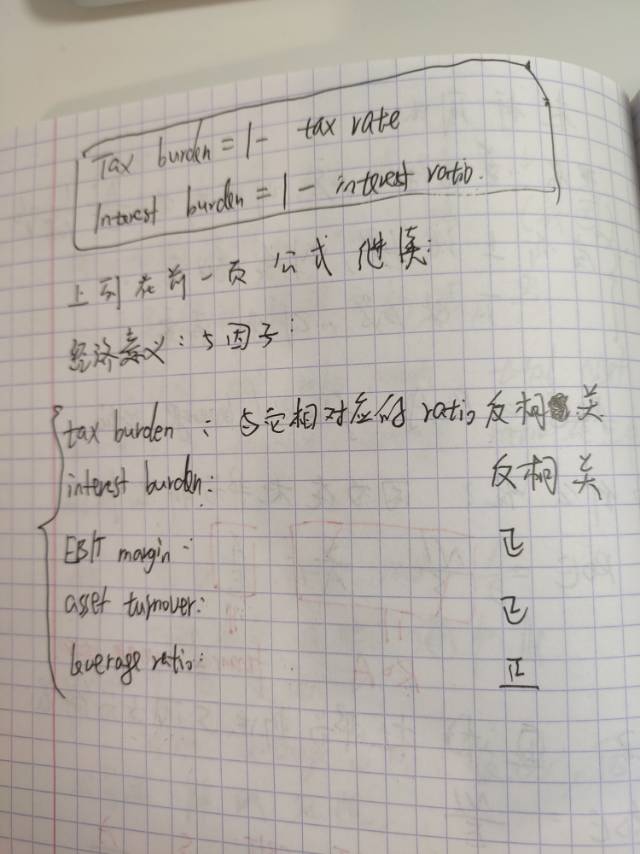 Tax burden = 1 - tax rate
Interest burden = 1 - interest ratio.
上到在前一页 公式 继续:
经济意义: 5因子:
tax burden : 与它相对应的 ratio 反相关
interest burden: 反相关
EBIT margin: 正
asset turnover: 正
leverage ratio: 正